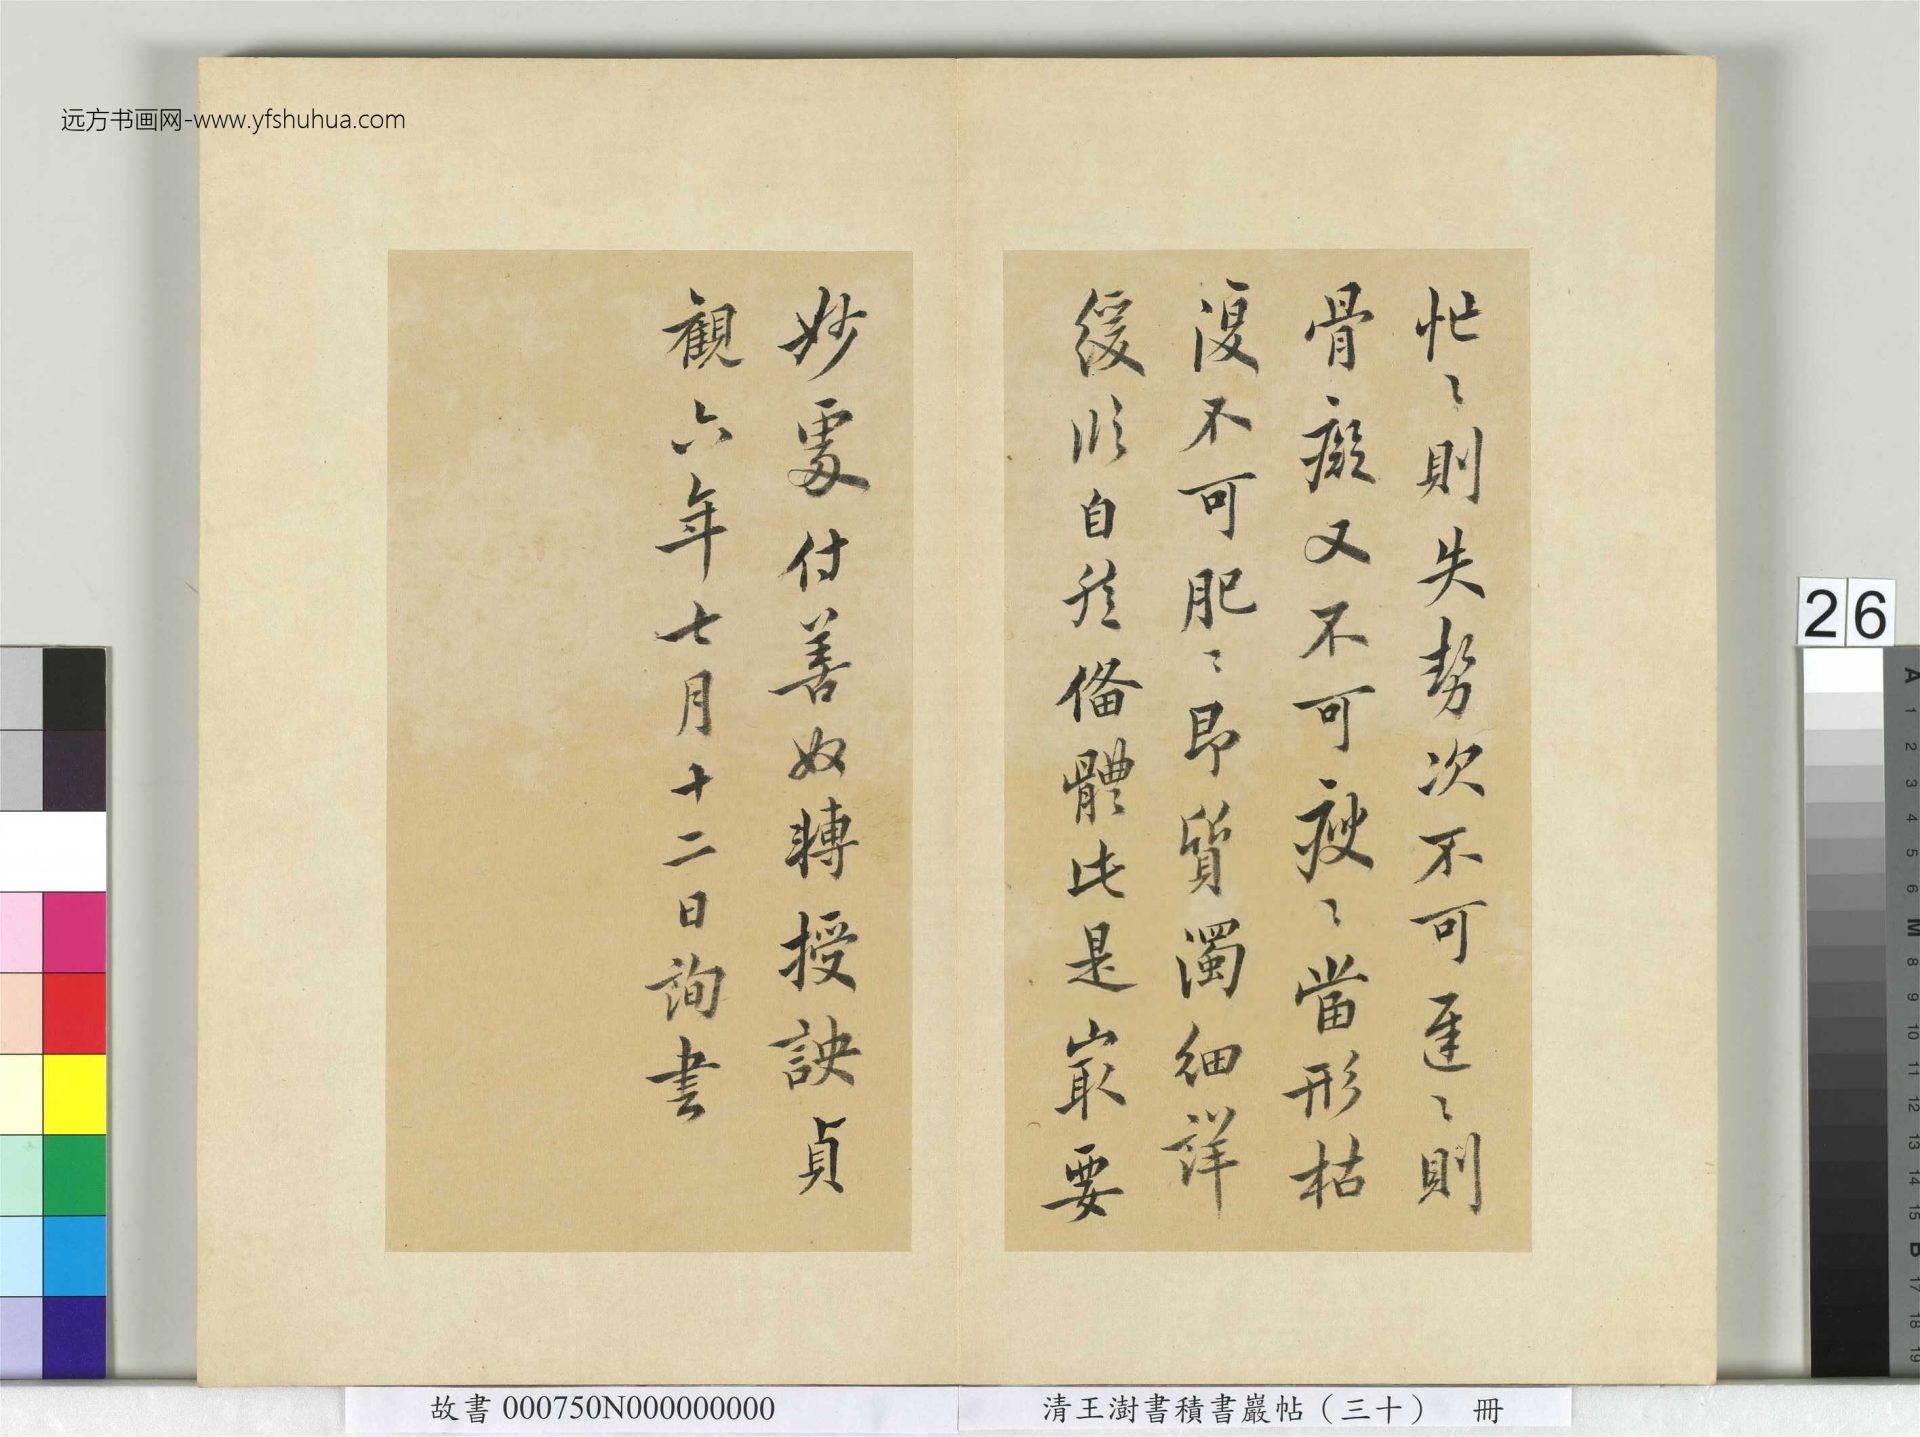 远方书画网-www.yfshuhua.com
忙〻則失勢次不可遲〻則
骨癡又不可瘦〻當形枯
復不可肥〻即質濁細詳
緩临自然俻體此是㝡要
妙處付善奴轉授訣貞
觀六年七月十二日詢書
26
故書 000750N000000000
清王澍書積書巖帖（三十） 冊
A
1
2
3
4
5
6
M
8
9
10
11
12
13
14
15
B
17
18
19